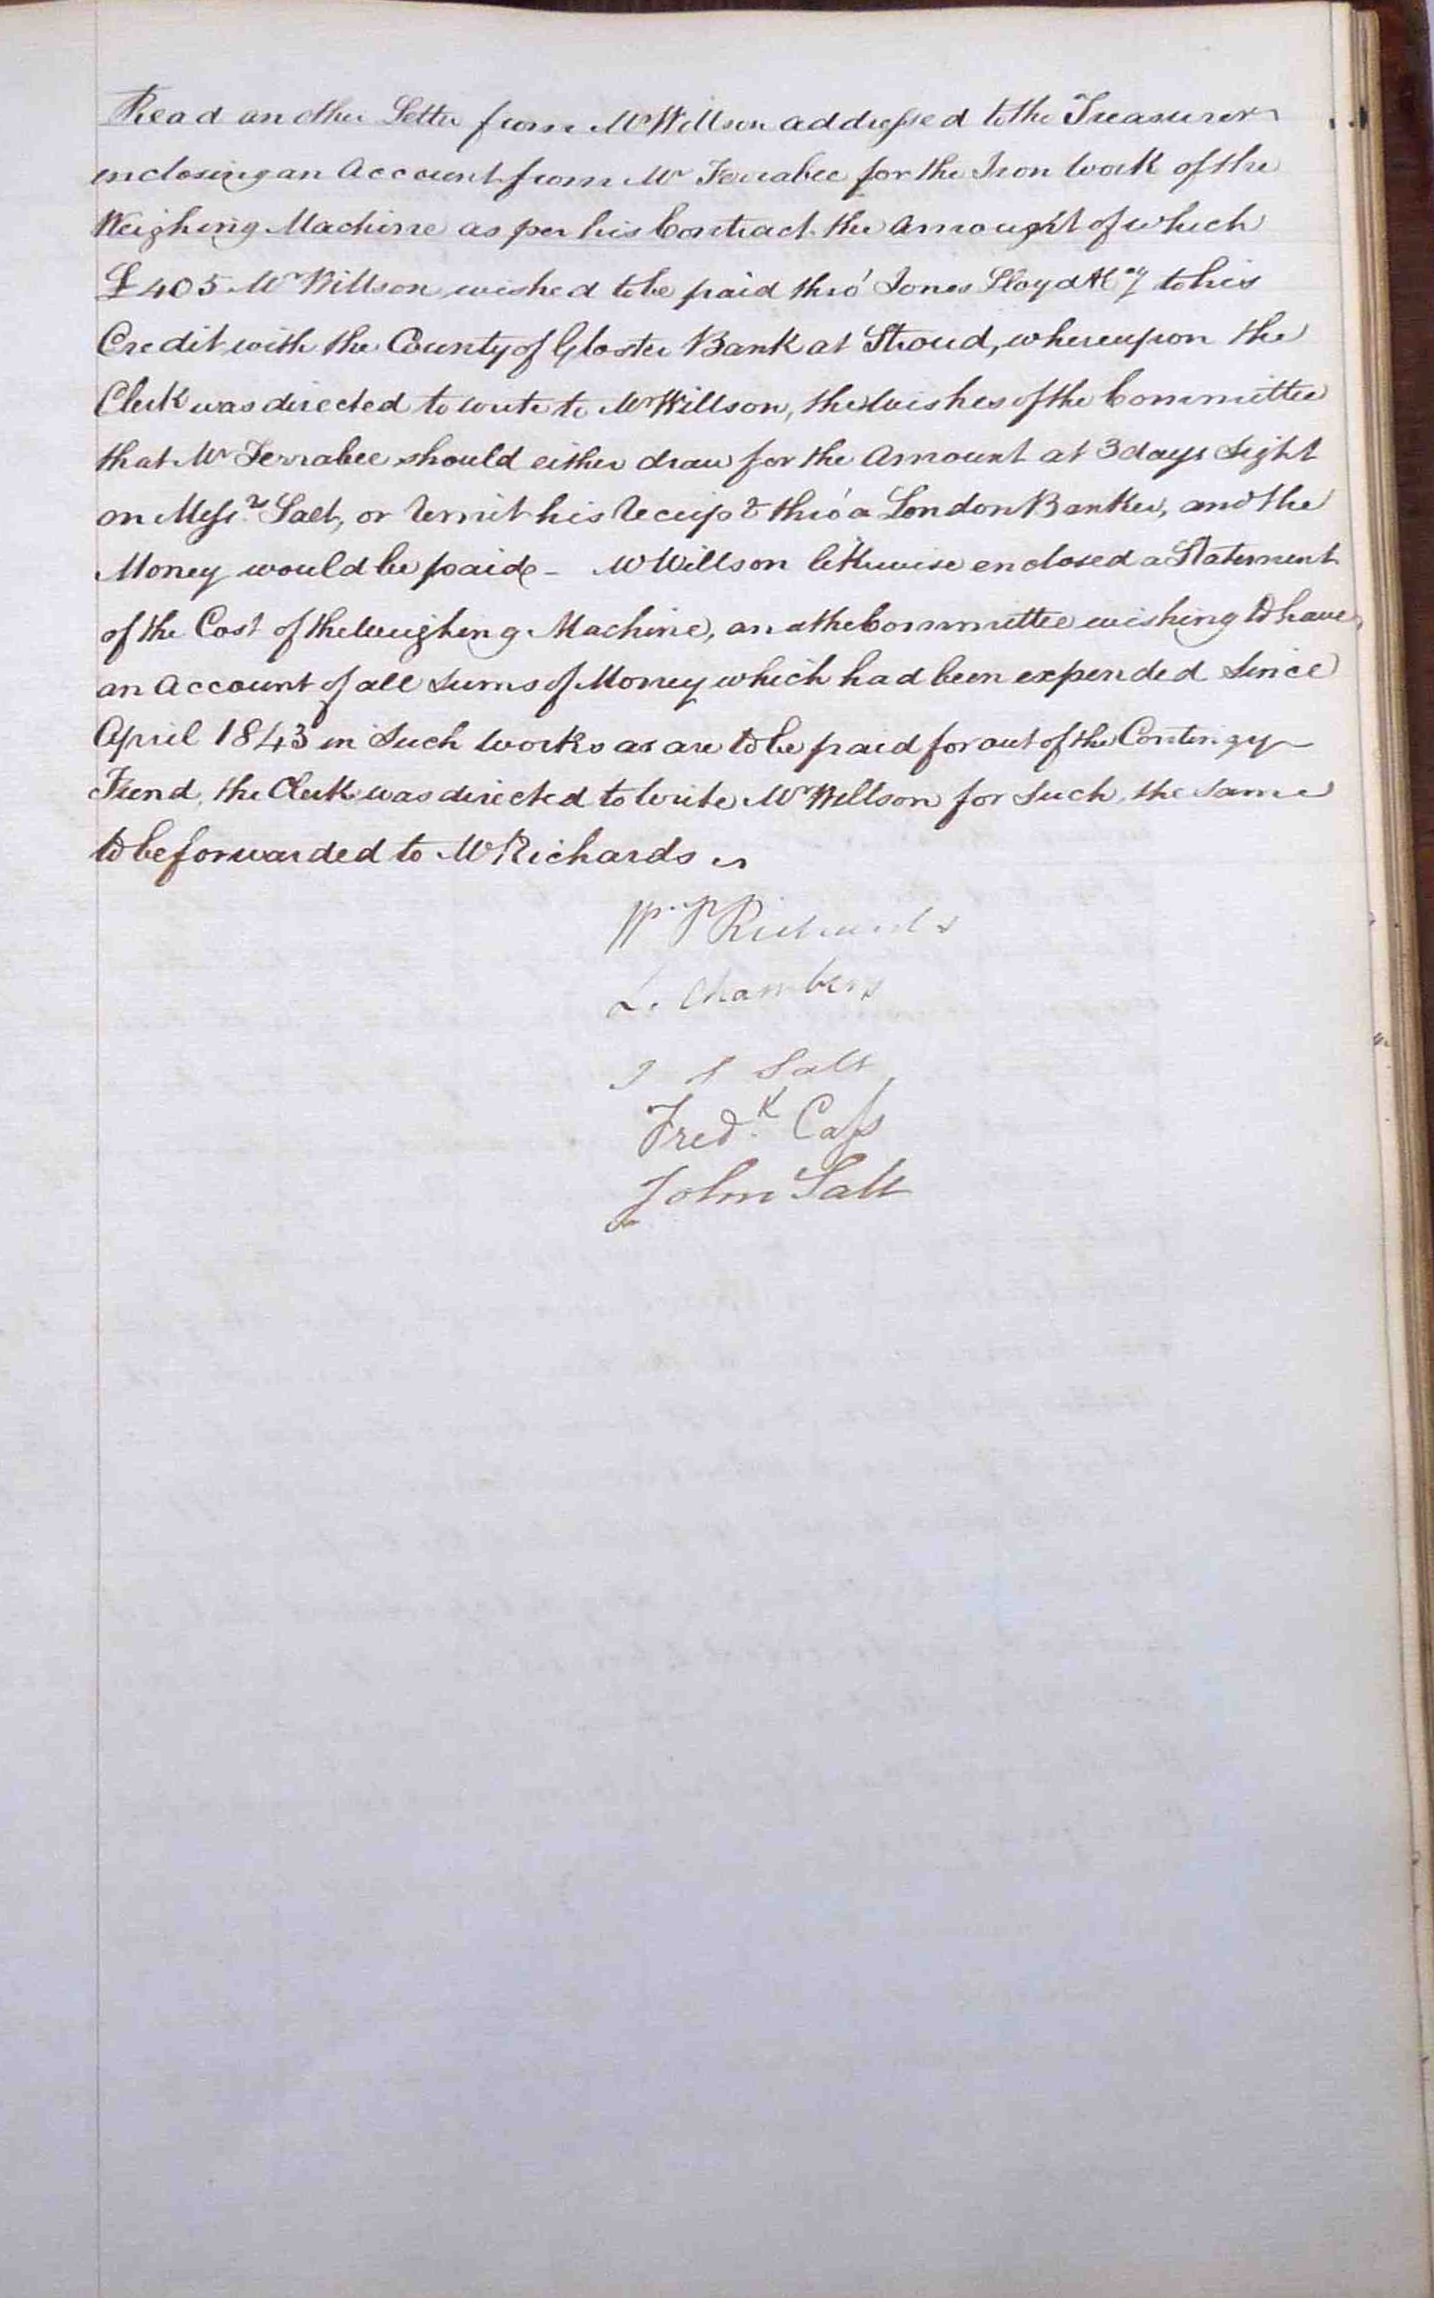 Read another Letter from Mr Willson addressed to the Treasurer
inclosing an Account from Mr Ferrabee for the Iron Work of the
Weighing Machine as per his Contract the Amought of which
£405 Mr Willson wished to be paid thro' Jones Lloyd & Coy to his
Credit with the County of Gloster Bank at Stroud, whereupon the
Clerk was directed to write to Mr Willson, the wishes of the Committee
that Mr Ferrabee should either draw for the Amount at 3 days Sight
on Messrs Salt, or remit his receipt thro' a London Banker, and the
Money would be paid - Mr Willson likewise enclosed a Statement
of the Cost of the Weighing Machine, and the Committee wishing to have
an Account of all Sums of Money which had been expended Since
April 1843 in Such Works as are to be paid for out of the Contingy
Fund, the Clerk was directed to Write Mr Willson for Such, the Same
to be forwarded to Mr Richards
W. P Richards
L. Chambers
T S Salt
Fredk. Cass
John Salt